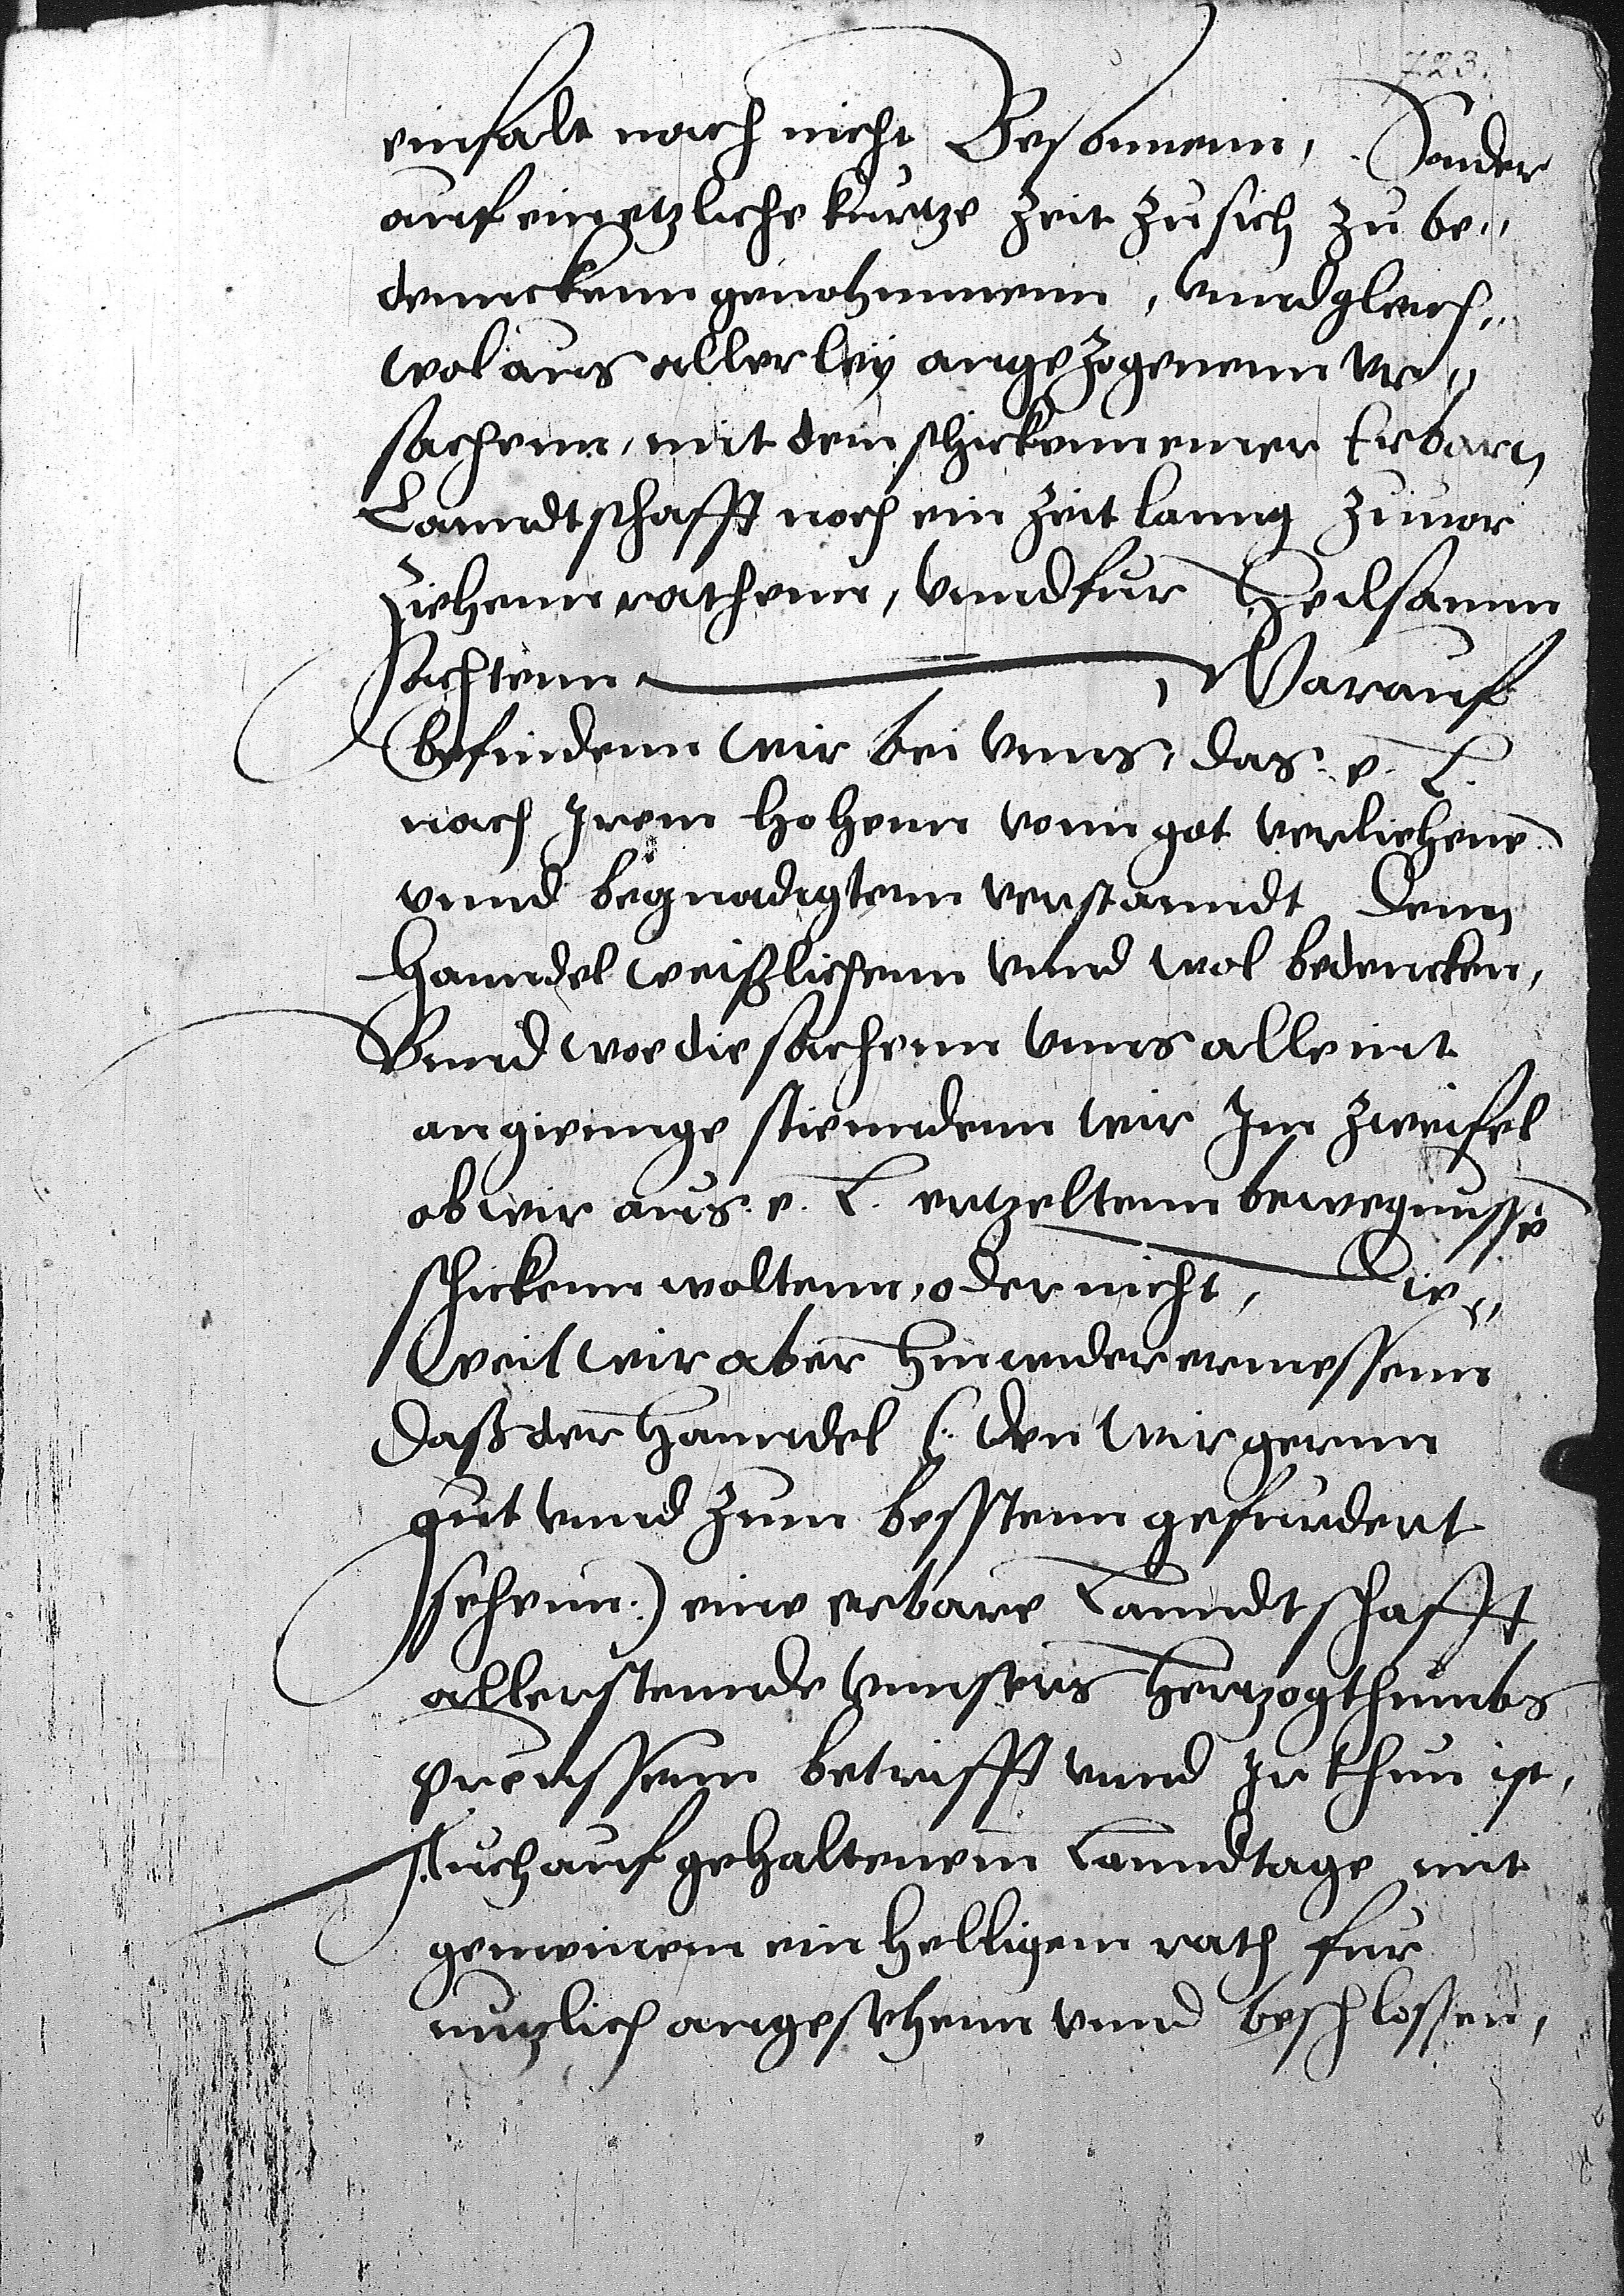 723.
einfalt nach nicht Besonnenn, Sonder
auf ein etzliche kurtze Zeit zu sich zu be„
denncken genohmmenn, vnnd gleich„
wol aus allerley angezogenenn vr„
sachenn, mit dem schickenn einer Erbarn
Lanndtschafft noch ein Zeit lanng zuuor
Ziehenn rathenn, vnnd fur heilsamm
Achtenn, Warauf
befindenn wir bei vnns, das e. L.
nach Irem hohenn vonn got verliehene
vnnd begnadigtenn verstanndt denn
Hanndel weißlichenn vnnd wol bedencken,
Vnnd woe die sachenn vnns alleint
angienge stiennndenn wir Im zweifel
ob wir aus e. L. ertzeltenn bewegnusse
schickenn woltenn, oder nicht, Die„
weil wir aber hinwider ermessenn
Daß der Hanndel (: den wir gernn
gut vnnd zum besstenn gefurdert
sehenn:) eine erbare Lanndtschafft
allerstennde vnnsers Hertzogthumbs
Preussenn betrifft vnnd Zu thun ist,
Auch auf gehaltenem Lanndtage mit
gemeinem ein helligem rath fur
nutzlich angesehenn vnnd beschlossen,